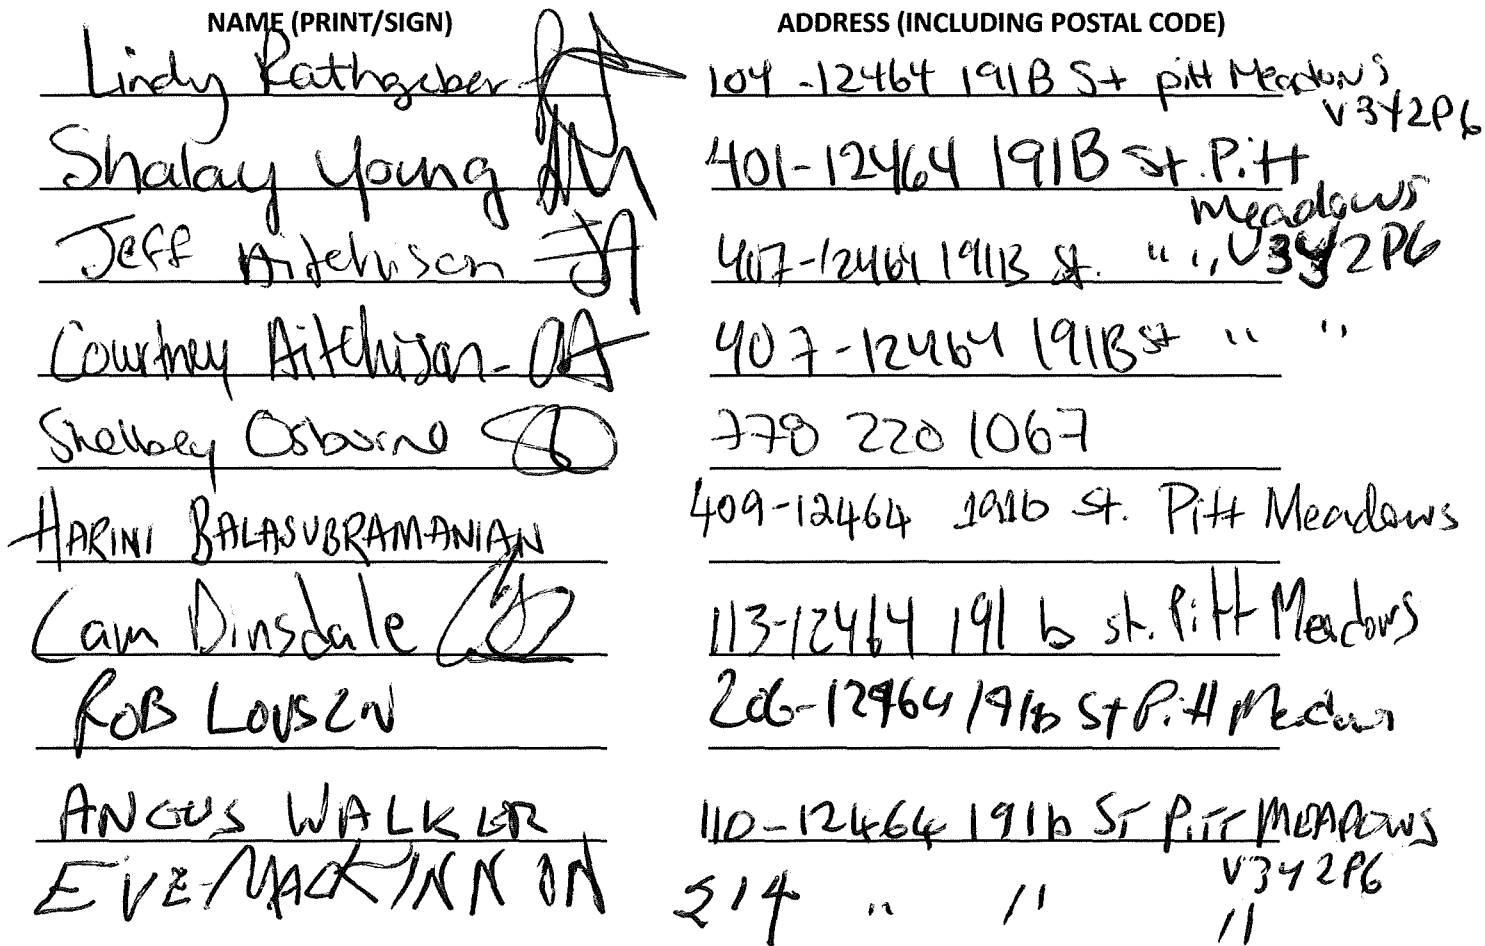 NAME (PRINT/SIGN) ADDRESS (INCLUDING POSTAL CODE)
Lindy Rathgeber 104 -12464 191B St pitt Meadows
V3Y2P6
Shalay Young 401-12464 191B St. Pitt
Meadows
Jeff Aitchison JA 407-12464 191B St. " " V3Y2P6
Courtney Aitchison - CA 407-12464 191B St " "
Shelbey Osborne SO 778 220 1067
HARINI BALASUBRAMANIAN 409-12464 191b St. Pitt Meadows
Cam Dinsdale CD 113-12464 191 b st. Pitt Meadows
ROB 206-12464 191b St Pitt Meadows
ANGUS WALKER 110-12464 191b ST PITT MEADOWS
V3Y2P6
EVE MACKINNON 214 " " "